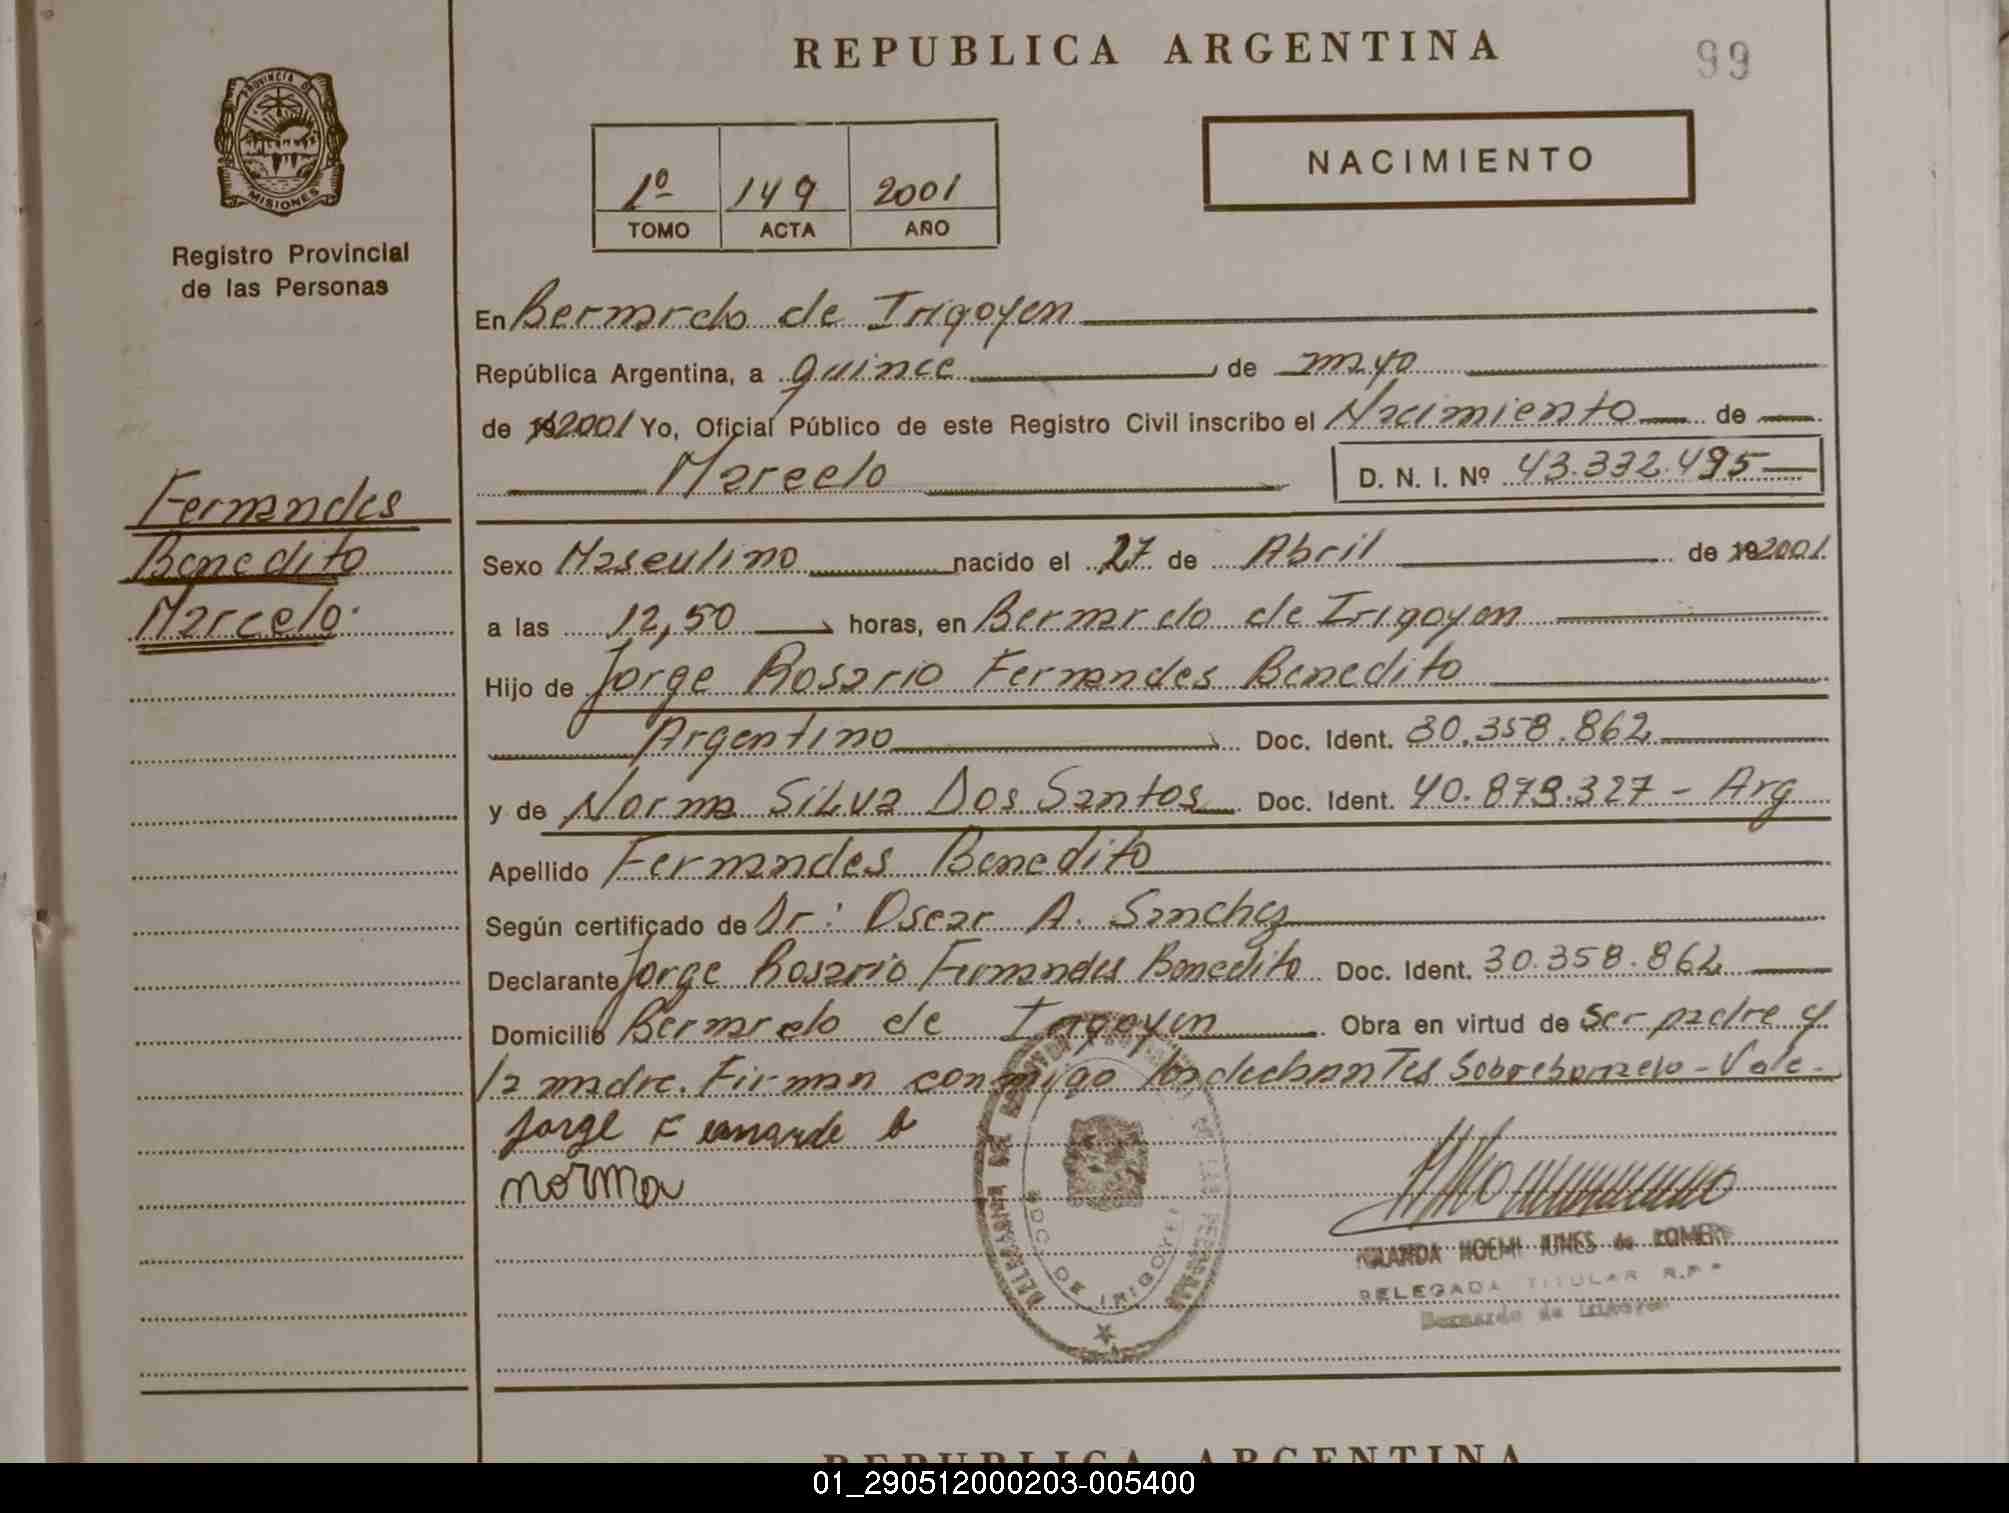 REPUBLICA ARGENTINA
99
PROVINCIA DE
MISIONES
Registro Provincial
de las Personas
1º 149 2001
TOMO ACTA AÑO
NACIMIENTO
En Bernardo de Irigoyen
República Argentina, a quince de mayo
de 192001 Yo, Oficial Público de este Registro Civil inscribo el Nacimiento de
Marcelo D. N. I. Nº 43.332.495
Fernandes
Benedito
Marcelo.
Sexo Masculino nacido el 27 de Abril de 192001.
a las 12,50 horas, en Bernardo de Irigoyen
Hijo de Jorge Rosario Fernandes Benedito
Argentino Doc. Ident. 30.358.862
y de Norma Silva Dos Santos Doc. Ident. 40.879.327 - Arg
Apellido Fernandes Benedito
Según certificado de Dr: Oscar A. Sanchez
Declarante Jorge Rosario Fernandes Benedito Doc. Ident. 30.358.862
Domicilio Bernardo de Irigoyen. Obra en virtud de Ser padre y
la madre. Firman conmigo Sobreborrado - Vale.
Jorge Fernande b
norma
DELEGADA TITULAR R.P.
Bernardo de Irigoyen
BDO. DE IRIGOYEN
REPUBLICA ARGENTINA
01_290512000203-005400